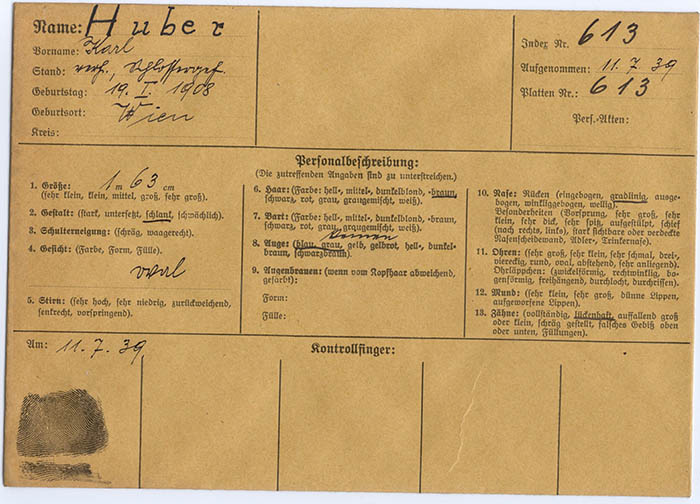 Name: Huber
Vorname: Karl
Stand: verh., Schlossergeh.
Geburtstag: 19. I. 1908
Geburtsort: Wien
Kreis:
Index Nr. 613
Aufgenommen: 11.7.39
Platten Nr.: 613
Pers.-Akten:
Personalbeschreibung:
(Die zutreffenden Angaben sind zu unterstreichen.)
1. Größe: 1 m 63 cm
(sehr klein, klein, mittel, groß, sehr groß).
2. Gestalt: (stark, untersetzt, schlank, schwächlich).
3. Schulterneigung: (schräg, waagerecht).
4. Gesicht: (Farbe, Form, Fülle).
oval
5. Stirn: (sehr hoch, sehr niedrig, zurückweichend,
senkrecht, vorspringend).
6. Haar: (Farbe: hell-, mittel-, dunkelblond, -braun,
schwarz, rot, grau, graugemischt, weiß).
7. Bart: (Farbe: hell-, mittel-, dunkelblond, -braun,
schwarz, rot, grau, graugemischt, weiß).
8. Auge: (blau, grau, gelb, gelbrot, hell-, dunkel-
braun, schwarzbraun).
9. Augenbrauen: (wenn vom Kopfhaar abweichend,
gefärbt):
Form:
Fülle:
10. Nase: Rücken (eingebogen, gradlinig, ausge-
bogen, winkliggebogen, wellig).
Besonderheiten (Vorsprung, sehr groß, sehr
klein, sehr dick, sehr spitz, aufgestülpt, schief
(nach rechts, links), stark sichtbare oder verdeckte
Nasenscheidewand, Adler-, Trinkernase).
11. Ohren: (sehr groß, sehr klein, sehr schmal, drei-,
viereckig, rund, oval, abstehend, sehr anliegend).
Ohrläppchen: (zwickelförmig, rechtwinklig, bo-
genförmig, freihängend, durchlocht, durchrissen).
12. Mund: (sehr klein, sehr groß, dünne Lippen,
aufgeworfene Lippen).
13. Zähne: (vollständig, lückenhaft, auffallend groß
oder klein, schräg gestellt, falsches Gebiß oben
oder unten, Füllungen).
Am: 11.7.39.
Kontrollfinger: